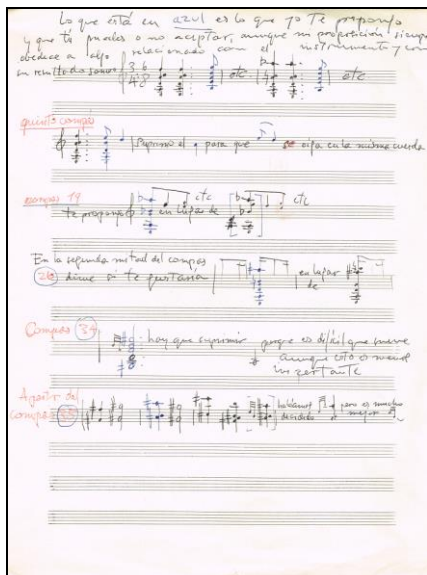 Lo que está en azul es lo que yo te propongo
y que tú puedes o no aceptar, aunque mi proposición siempre
obedece a algo relacionado con el instrumento y con
su resultado sonoro 3 6 4 8 etc etc
quinto compás
Suprimo el para que se oiga en la misma cuerda
compás 19 etc etc
te propongo en lugar de
En la segunda mitad del compás
26 dime si te gustaría en lugar
de
Compás 34 hay que suprimir porque es difícil que suene
aunque esto es menos
importante
A partir del
compás habíamos decidido pero es mucho
mejor